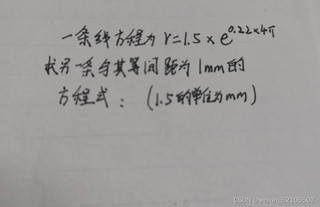 一条线方程为 r=1.5×e^0.22×4π
求另一条与其等间距为1mm的
方程式：（1.5的单位为mm）
CSDN @weixin_52105507